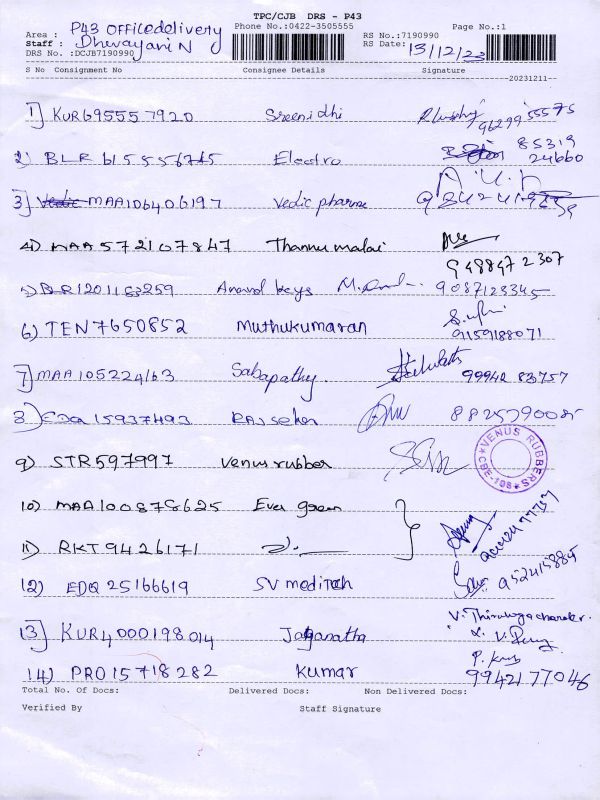 TPC/CJB DRS - P43
Phone No.:0422-3505555 Page No.:1
Area : P43 officedelivery
RS No.:7190990
Staff : Dhevayani N
RS Date: 13/12/23
DRS No. :DCJB7190990
S No Consignment No Consignee Details Signature
20231211
1) KUR695557920 Sreenidhi 96299 55575
2) BLR 615556745 Electro 85319 24660
3) Vedic MAA106406197 Vedic pharma
4) MAA572107847 Thannumalai 948847 2307
5) BLR1201162259 Anand keys 9087123345
6) TEN7650852 Muthukumaran 9159188071
7) MAA105224163 Sabapathy. 99942 83757
8) EDQ 15937493 Rajseker
9) STR597997 Venus rubber
VENUS RUBBERS
CBE-108
10) MAA100878625 Ever green
11) RKT9426171
12) EDQ 25166619 SV meditech
13) KUR4000198014 Jaganatha
14) PRO15718282 Kumar 9942177046
Total No. Of Docs: Delivered Docs: Non Delivered Docs:
Verified By Staff Signature